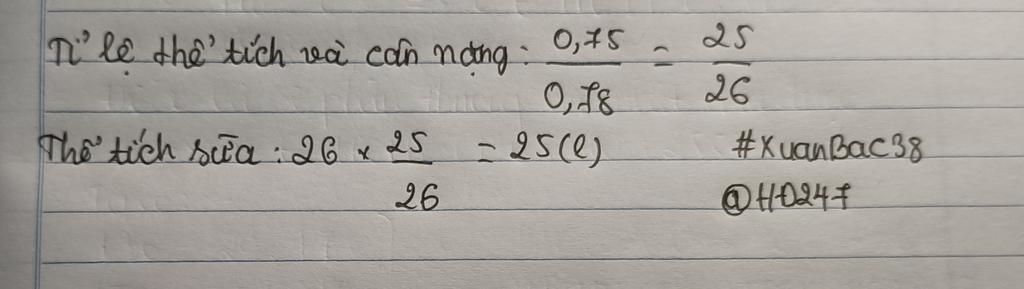 Tỉ lệ thể tích và cân nặng: 0,75/0,78 = 25/26
Thể tích sữa: 26 × 25/26 = 25(l) #XuanBac38
@HD247